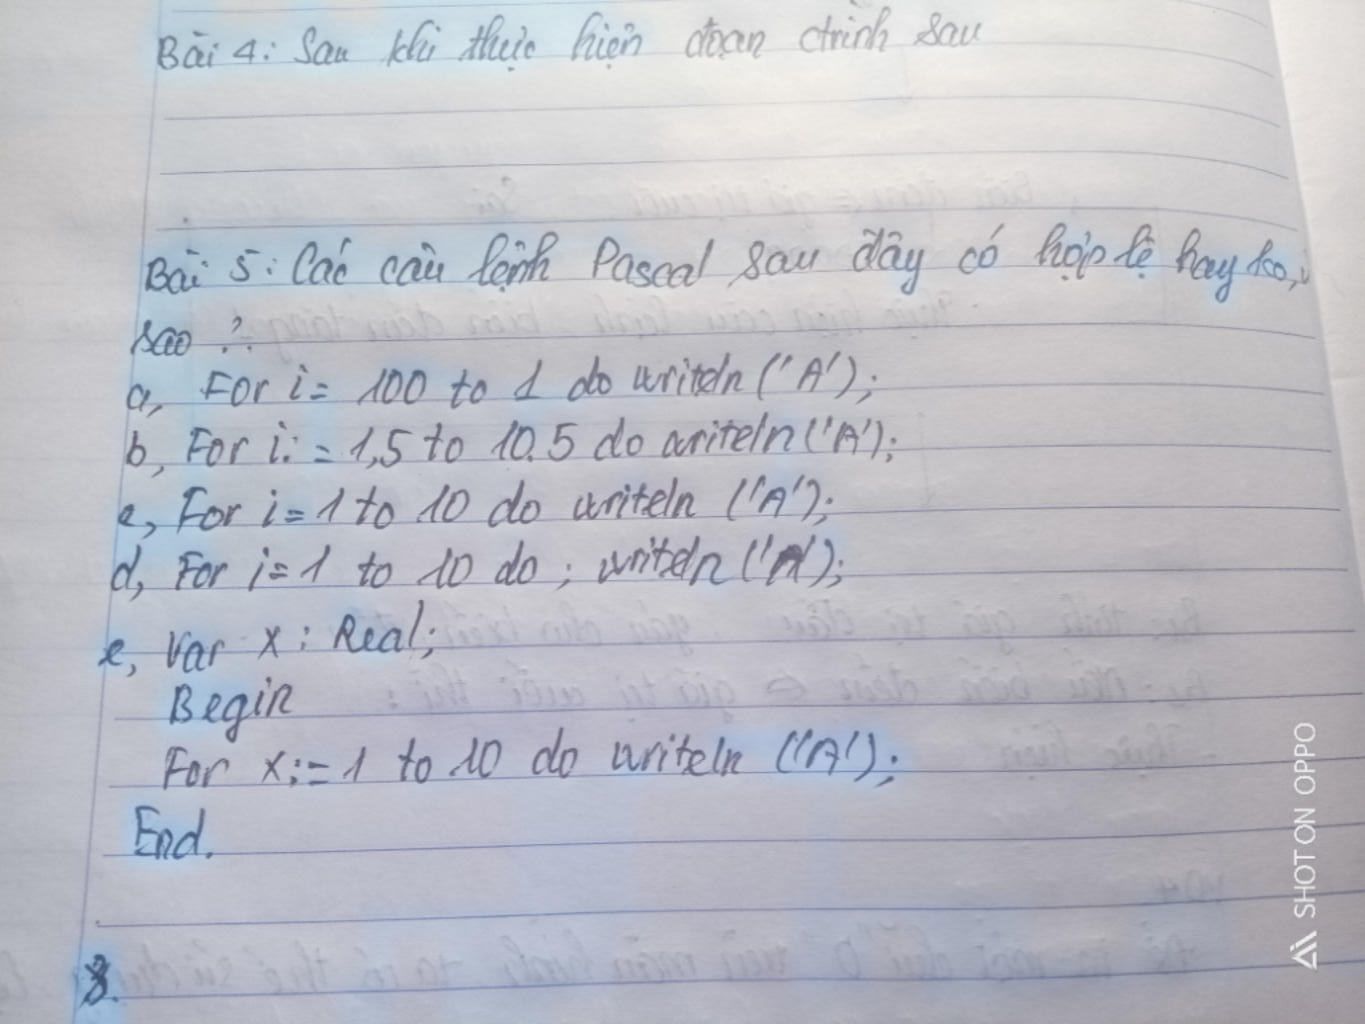 Bài 4: Sau khi thực hiện đoạn ctrình sau
Bài 5: Các câu lệnh Pascal sau đây có hợp lệ hay ko,
sao?
a, For i= 100 to 1 do writeln ('A');
b, For i: = 1,5 to 10.5 do writeln ('A');
c, For i=1 to 10 do writeln ('A');
d, For i=1 to 10 do ; writeln ('A');
e, Var x : Real;
Begin
For x:=1 to 10 do writeln ('A');
End.
3.
SHOT ON OPPO